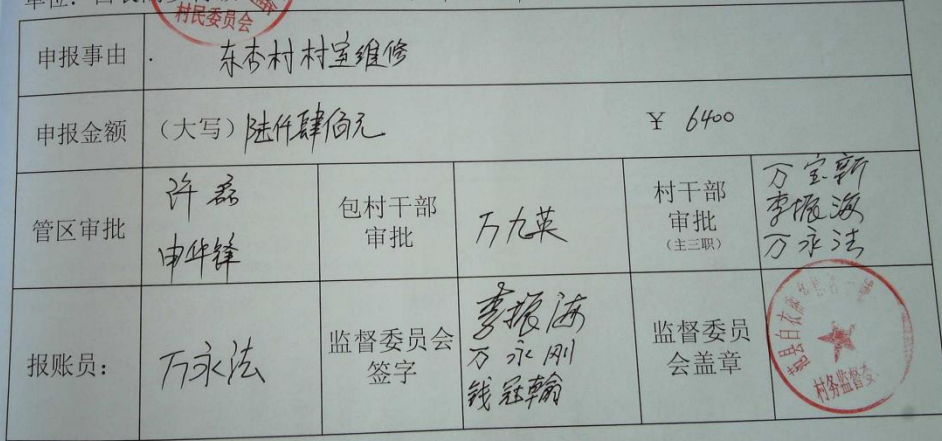 单位：
村民委员会
申报事由
东杏村村室维修
申报金额
（大写）陆仟肆佰元
¥ 6400
管区审批
许磊
申华锋
包村干部
审批
万九英
村干部
审批
（主三职）
万宝新
李振海
万永法
报账员：
万永法
监督委员会
签字
李振海
万永刚
钱冠翰
监督委员
会盖章
县白衣
村务监督委